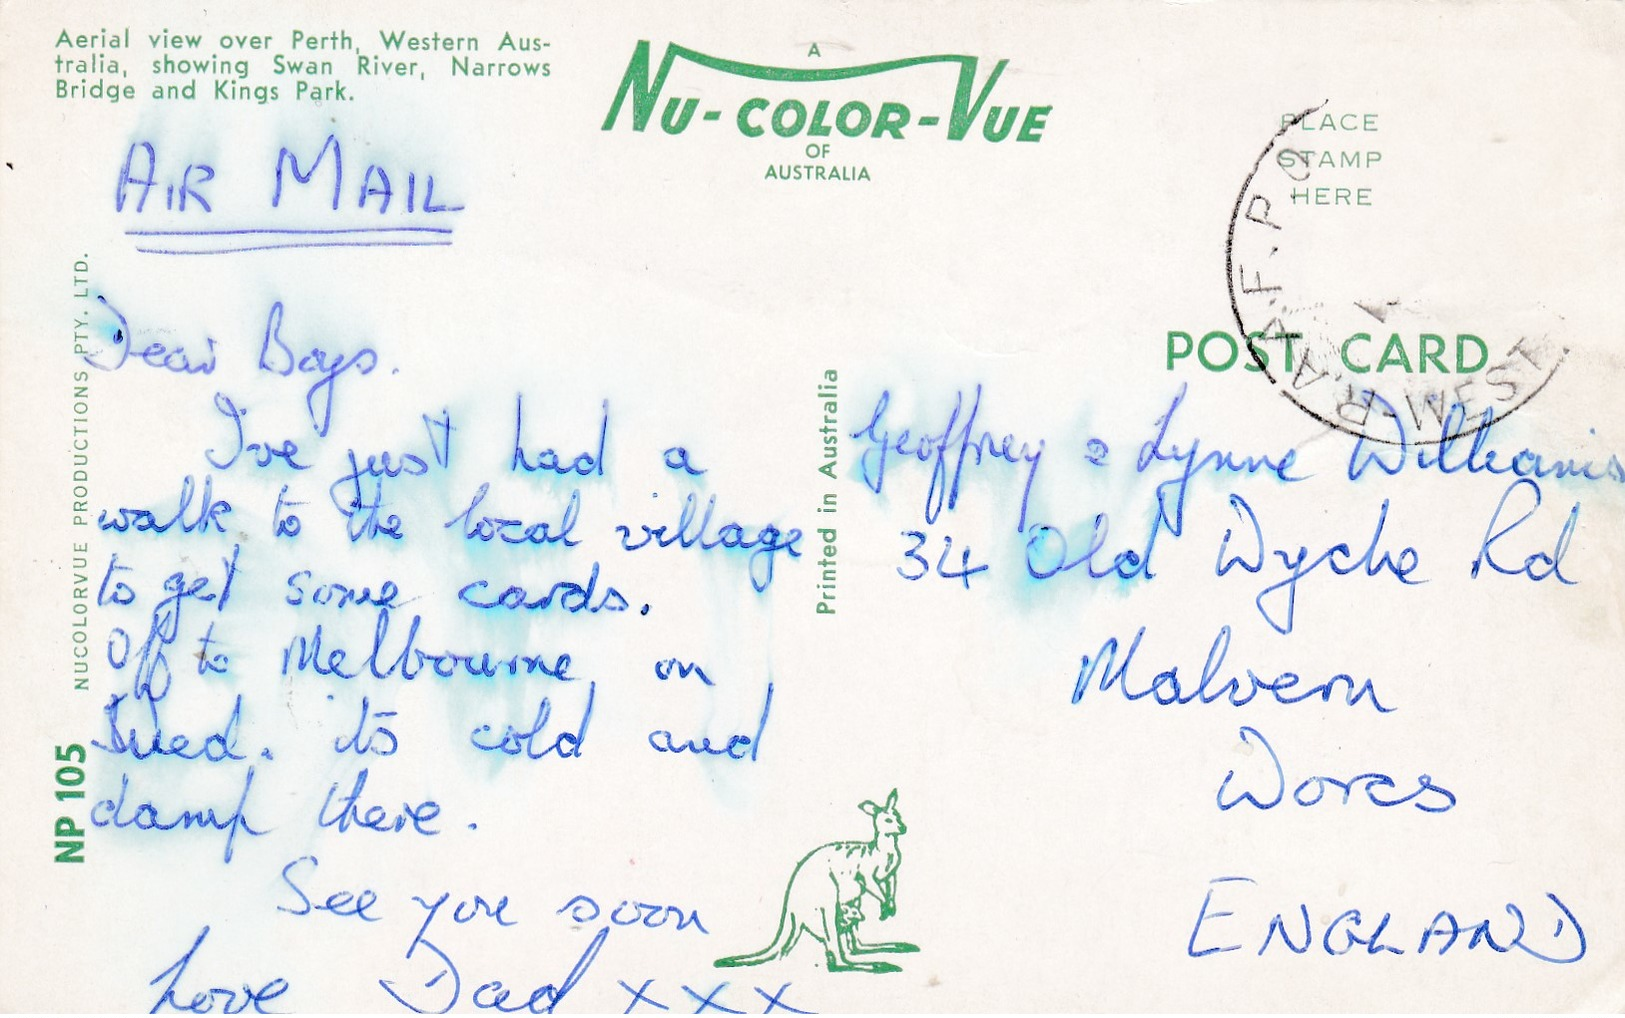 Aerial view over Perth, Western Aus-
tralia, showing Swan River, Narrows
Bridge and Kings Park.
A
NU-COLOR-VUE
OF
AUSTRALIA
PLACE
STAMP
HERE
R.A.A.F.P.O.
R-WEST
POST CARD
AIR MAIL
NUCOLORVUE PRODUCTIONS PTY. LTD.
NP 105
Printed in Australia
Dear Boys.
I've just had a
walk to the local village
to get some cards.
Off to Melbourne on
Wed. its cold and
damp there.
See you soon
Love Dad xxx
Geoffrey & Lynne Williams
34 Old Wyche Rd
Malvern
Worcs
ENGLAND